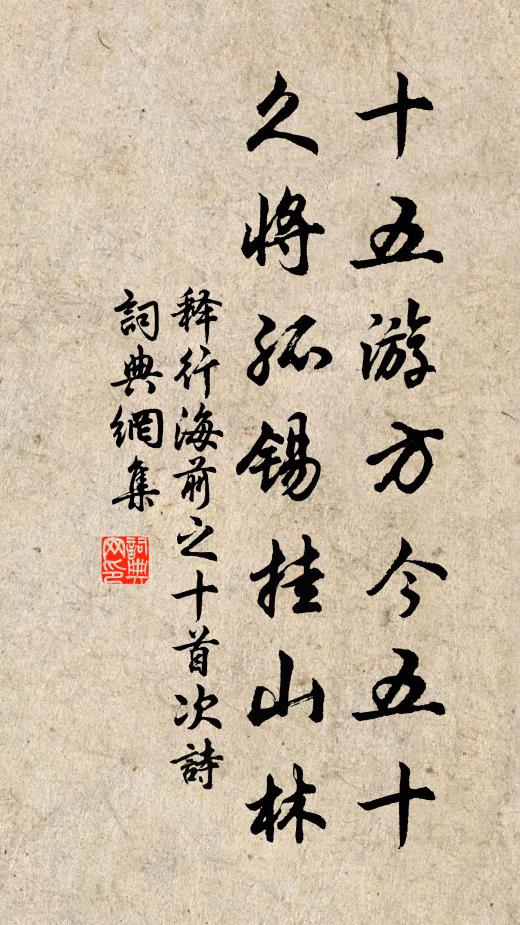 十五游方今五十
久將孤錫挂山林
释行海前之十首次詩
詞典網集
詞典网印